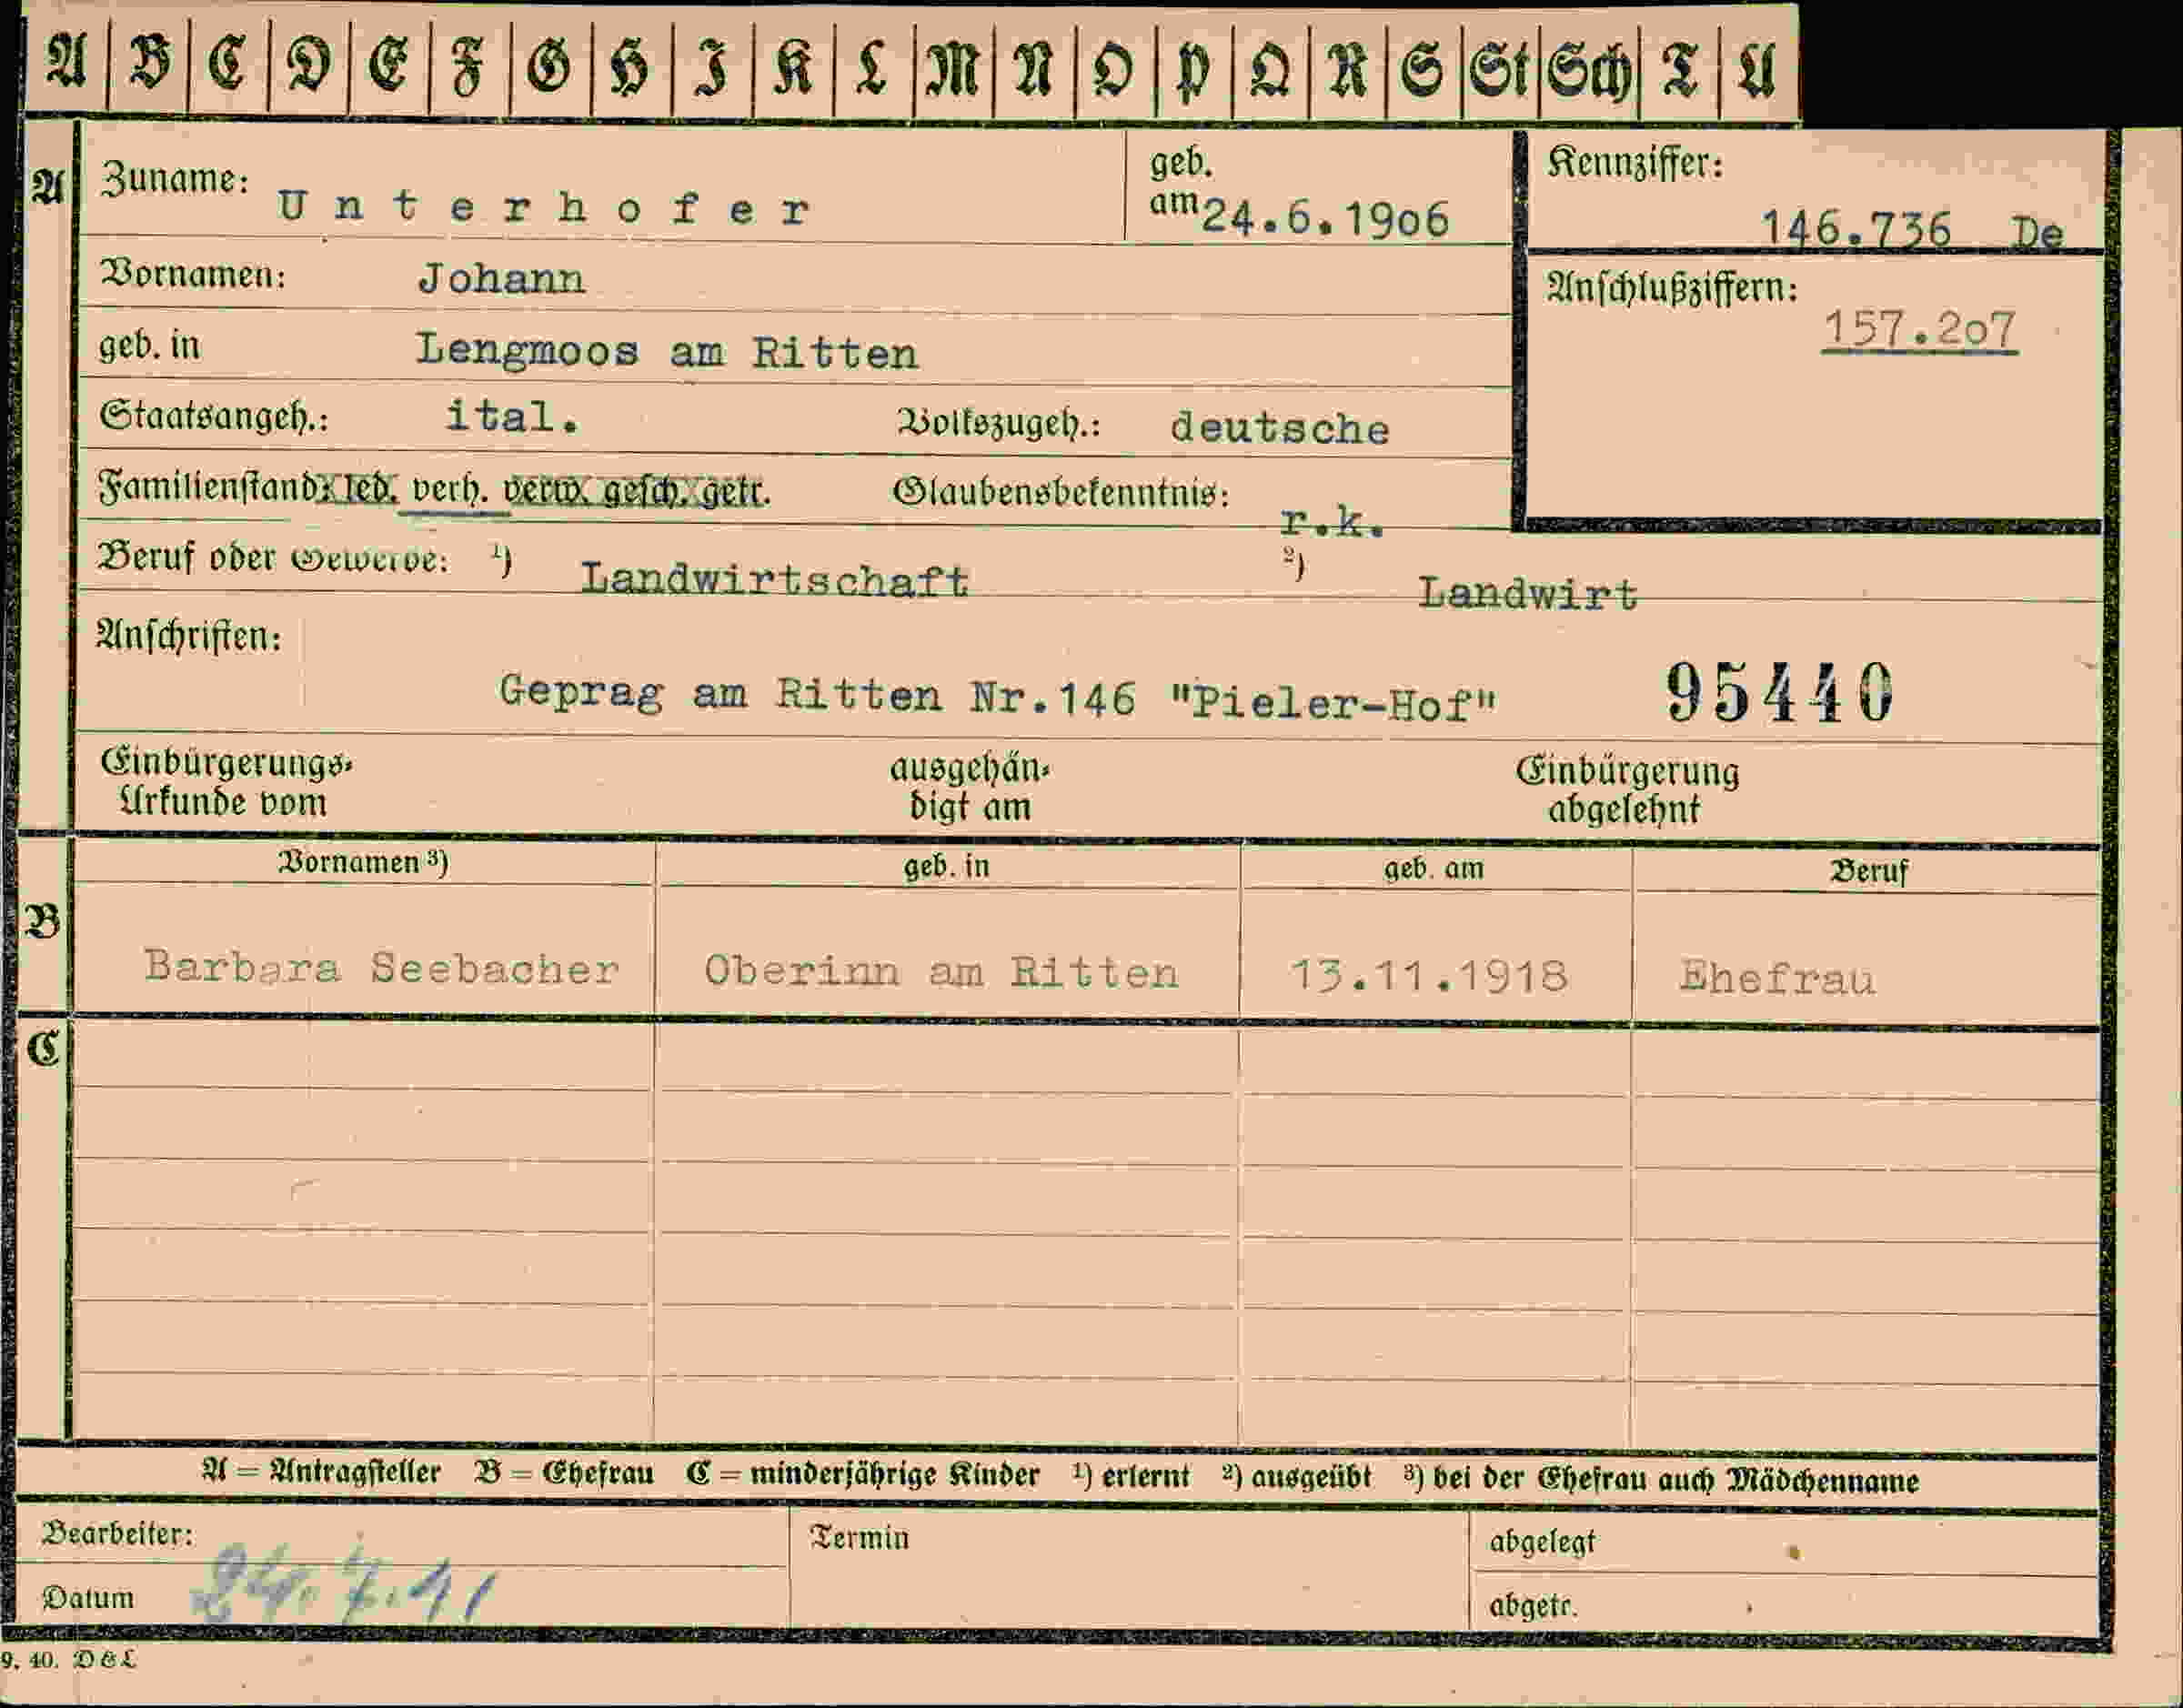 A B C D E F G H I K L M N O P Q R S St Sch T U
A Zuname: Unterhofer geb. am 24.6.1906 Kennziffer: 146.736 De
Vornamen: Johann Anschlußziffern: 157.207
geb. in Lengmoos am Ritten
Staatsangeh.: ital. Volkszugeh.: deutsche
Familienstand: led. verh. verw. gesch. getr. Glaubensbekenntnis: r.k.
Beruf oder Gewerbe: ¹) Landwirtschaft ²) Landwirt
Anschriften:
Geprag am Ritten Nr.146 "Pieler-Hof" 95440
Einbürgerungs- ausgehän- Einbürgerung
Urkunde vom digt am abgelehnt
Vornamen ³) geb. in geb. am Beruf
B
Barbara Seebacher Oberinn am Ritten 13.11.1918 Ehefrau
C
A = Antragsteller B = Ehefrau C = minderjährige Kinder ¹) erlernt ²) ausgeübt ³) bei der Ehefrau auch Mädchenname
Bearbeiter: Termin abgelegt
Datum 24.7.41 abgetr.
9. 40. D & L